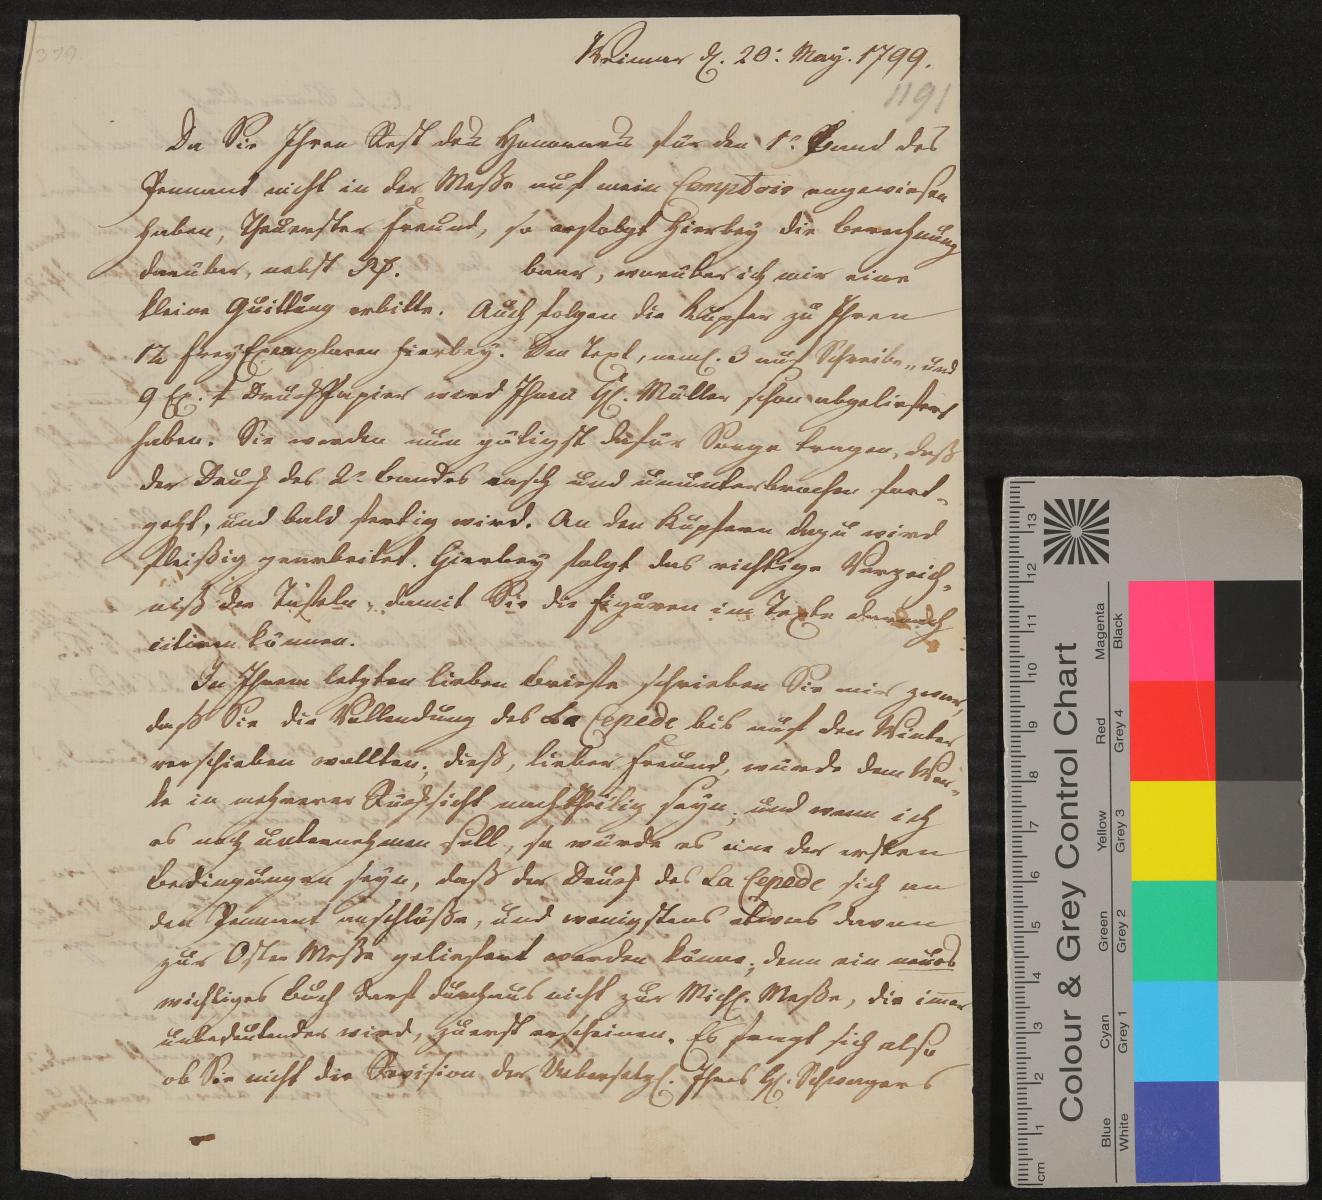 379
Weimar d. 20: May. 1799.
1191
Da Sie Ihren Rest des Honorars für den 1n Band des
Pennant nicht in der Messe auf mein Comptoir angewiesen
haben, theuerster Freund, so erfolgt hierbey die Berechnung
darüber, nebst Rth. baar, worüber ich mir eine
kleine Quittung erbitte. Auch folgen die Kupfer zu Ihren
12 FreyExemplaren hierbey. Den Text, neml. 3 auf Schreib- und
9 Ex. f DruckPapier wird Ihnen H. Müller schon abgeliefert
haben. Sie werden nun gütigst dafür Sorge tragen, daß
der Druck des 2n Bandes rasch und ununterbrochen fort-
geht, und bald fertig wird. An den Kupfern dazu wird
fleißig gearbeitet. Hierbey folgt das richtige Verzeich-
niß der Tafeln, damit Sie die Figuren im Texte darnach
citiren können.
In Ihrem letzten lieben Briefe schrieben Sie mir zwar,
daß Sie die Vollendung des La Cepede bis auf den Winter
verschieben wollten; dieß, lieber Freund, würde dem Wer-
ke in mehrerer Rücksicht nachtheilig seyn; und wenn ich
es noch unternehmen soll, so würde es eine der ersten
Bedingungen seyn, daß der Druck des La Cepede sich an
den Pennant anschlösse, und wenigstens etwas davon
zur Oster Messe geliefert werden könne; denn ein neues
wichtiges Buch darf durchaus nicht zur Mich. Messe, die immer
unbedeutender wird, zuerst erscheinen. Es fragt sich also
ob Sie nicht die Revision der Uebersetzg. Ihres H. Schwagers
Colour & Grey Control Chart
Magenta
Red
Yellow
Green
Cyan
Blue
Black
Grey 4
Grey 3
Grey 2
Grey 1
White
cm 1 2 3 4 5 6 7 8 9 10 11 12 13